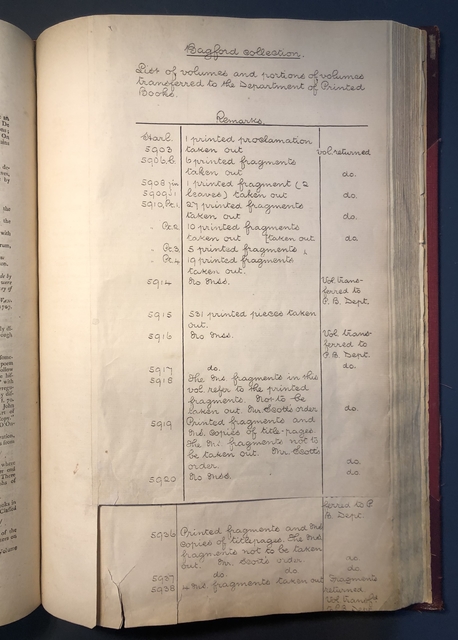 Bagford Collection.
List of volumes and portions of volumes
transferred to the Department of Printed
Books.
Remarks.
Harl. 1 printed proclamation
5903 taken out vol returned
5906.b. 6 printed fragments
taken out do.
5908 1 printed fragment (2
5909 leaves) taken out do.
5910, Pt. 1 27 printed fragments
taken out do.
" Pt. 2 10 printed fragments
taken out taken out do.
" Pt. 3 5 printed fragments
" Pt. 4 19 printed fragments
taken out.
5914 No Mss. Vol. trans-
ferred to
P.B. Dept.
5915 531 printed pieces taken
out.
5916 No Mss. Vol trans-
ferred to
P.B. Dept.
5917 do. do.
5918 The Ms. fragments in this
vol. refer to the printed
fragments. Not to be
taken out. Mr. Scott's order do.
5919 Printed fragments and
Ms. copies of title-pages.
The Ms. fragments not to
be taken out. Mr. Scott's
order. do.
5920 No Mss. do.
ferred to P.
B. Dept
5936 Printed fragments and Ms.
copies of titlepages. The Ms.
fragments not to be taken
out. Mr. Scott's order do.
5937 do. do. do. do.
5938 4 Ms. fragments taken out Fragments
returned
Vol transf.
P.B. Dept.